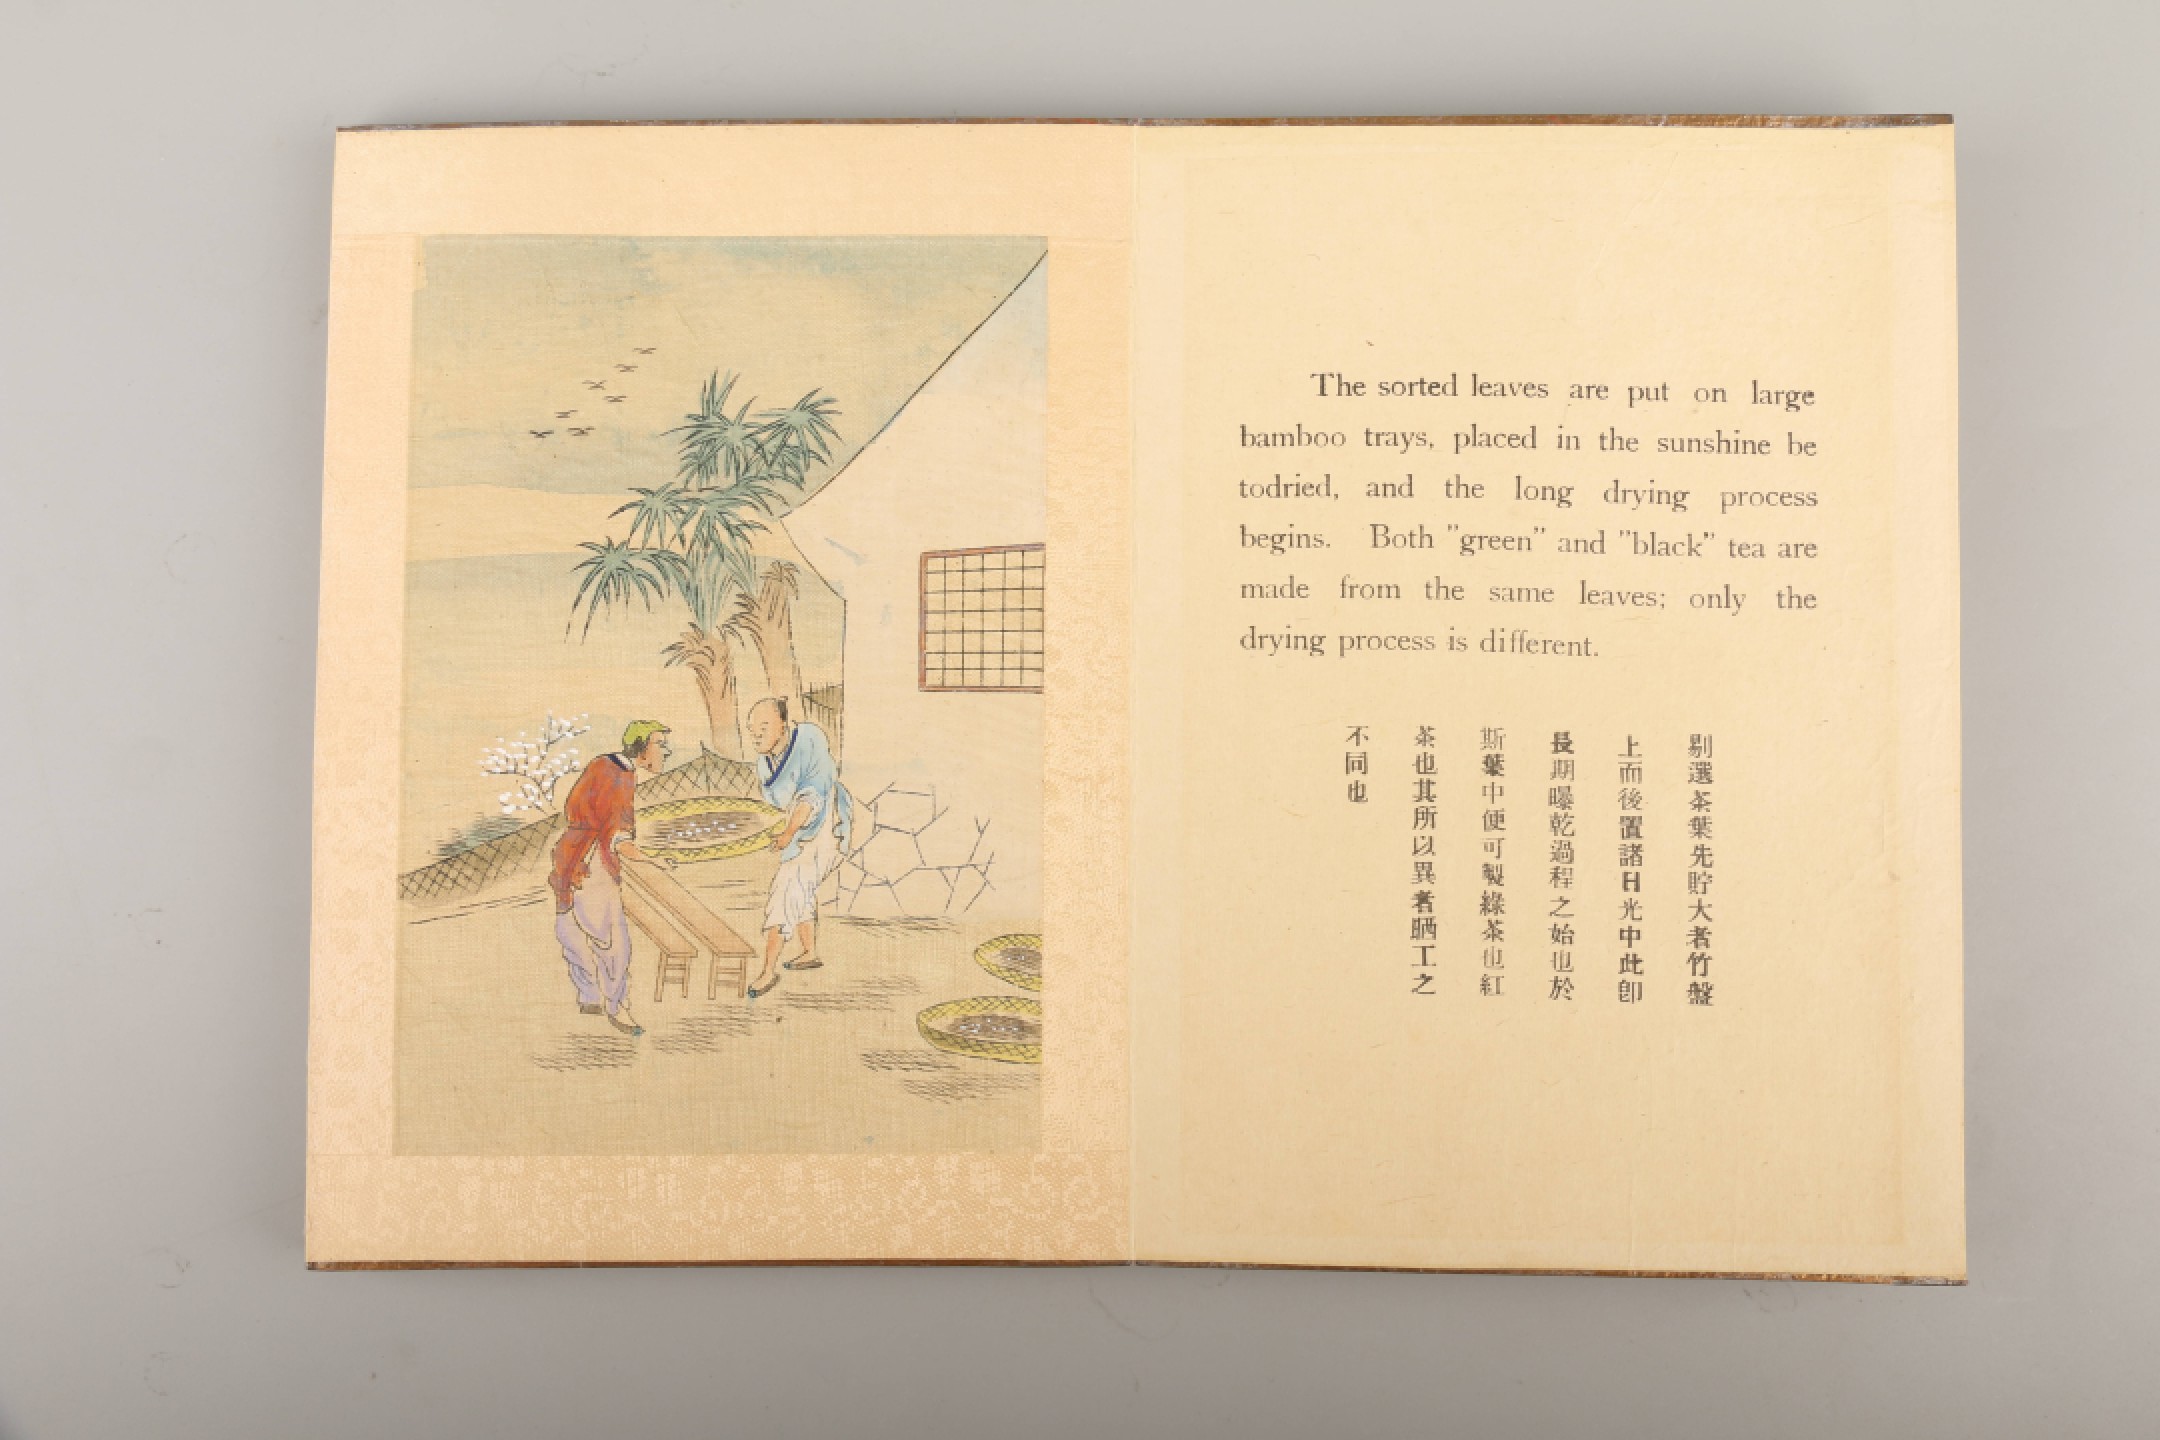 The sorted leaves are put on large
bamboo trays, placed in the sunshine be
todried, and the long drying process
begins. Both "green" and "black" tea are
made from the same leaves; only the
drying process is different.
剔選茶葉先貯大者竹盤
上而後置諸日光中此卽
長期曝乾過程之始也於
斯葉中便可製綠茶也紅
茶也其所以異者晒工之
不同也